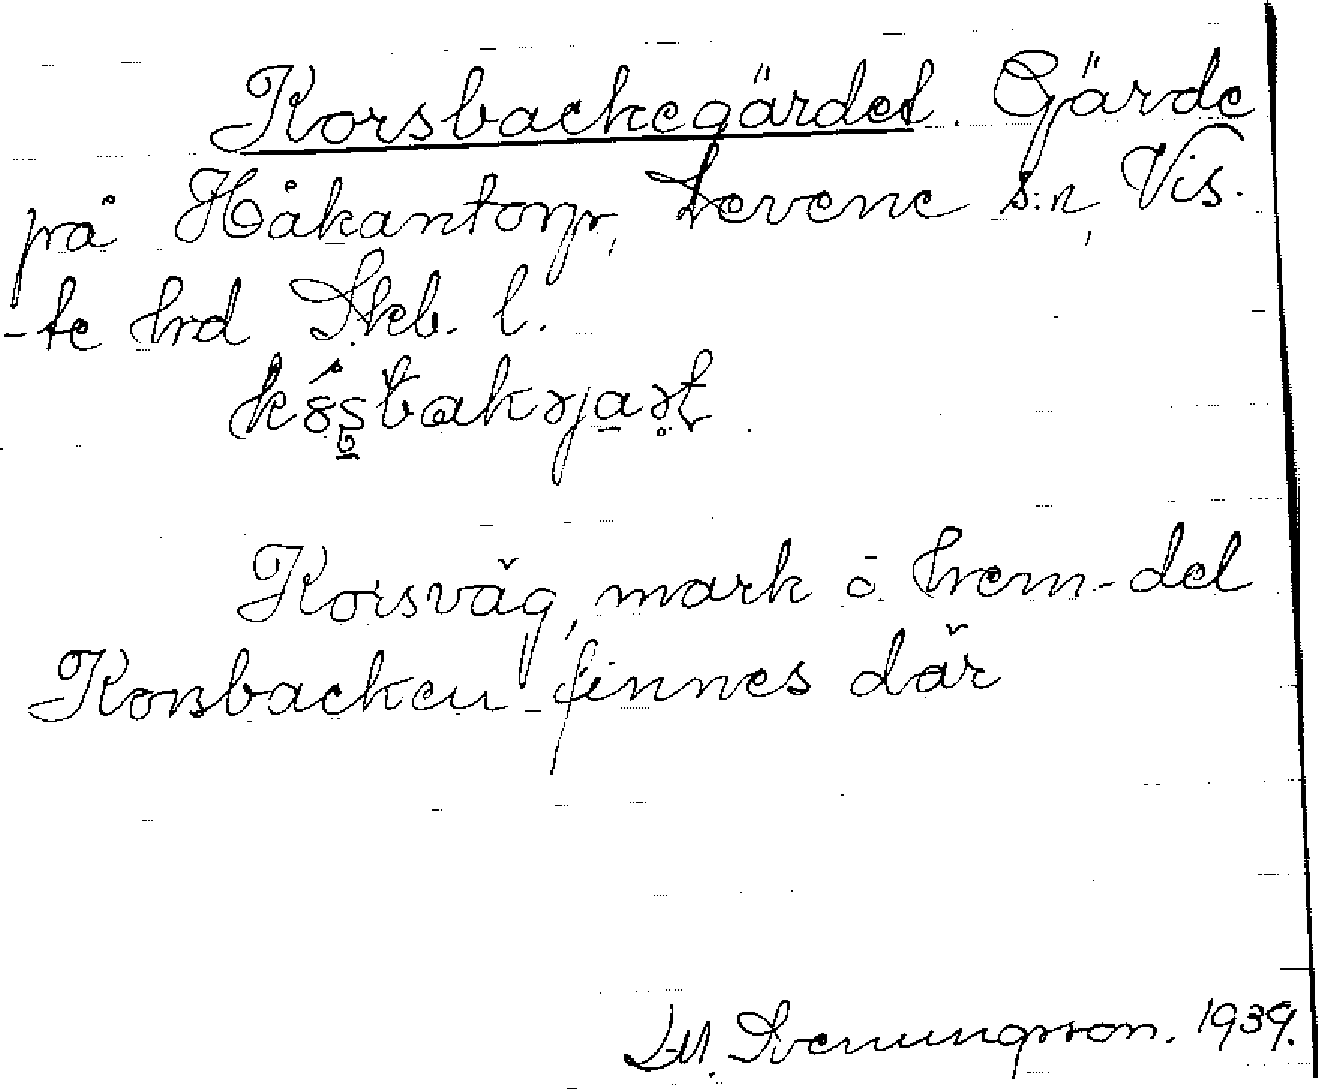 Korsbackegärdet. Gärde
på Håkantorp, Levene s:n, Vis-
-te hrd Skb. l.

Korsväg, mark o. hem-del
Korsbacken finnes där
M. Svenungsson. 1939.